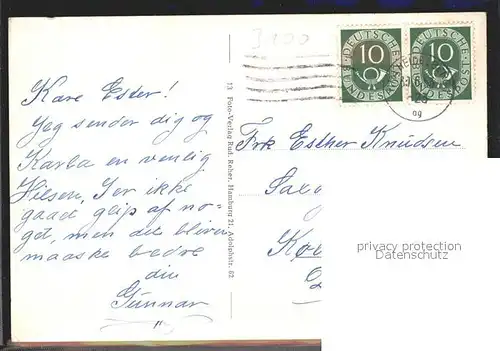 Kære Ester!
Jeg sender dig og
Karla en venlig
Hilsen, I er ikke
gaaet glip af no-
get, men det bliver
maaske bedre
din
Gunnar
13 Foto-Verlag Rud. Reher, Hamburg 21, Adolphstr. 62
DEUTSCHE
10
BUNDESPOST
DEUTSCHE
10
BUNDESPOST
Frk Esther Knudsen
privacy protection
Datenschutz